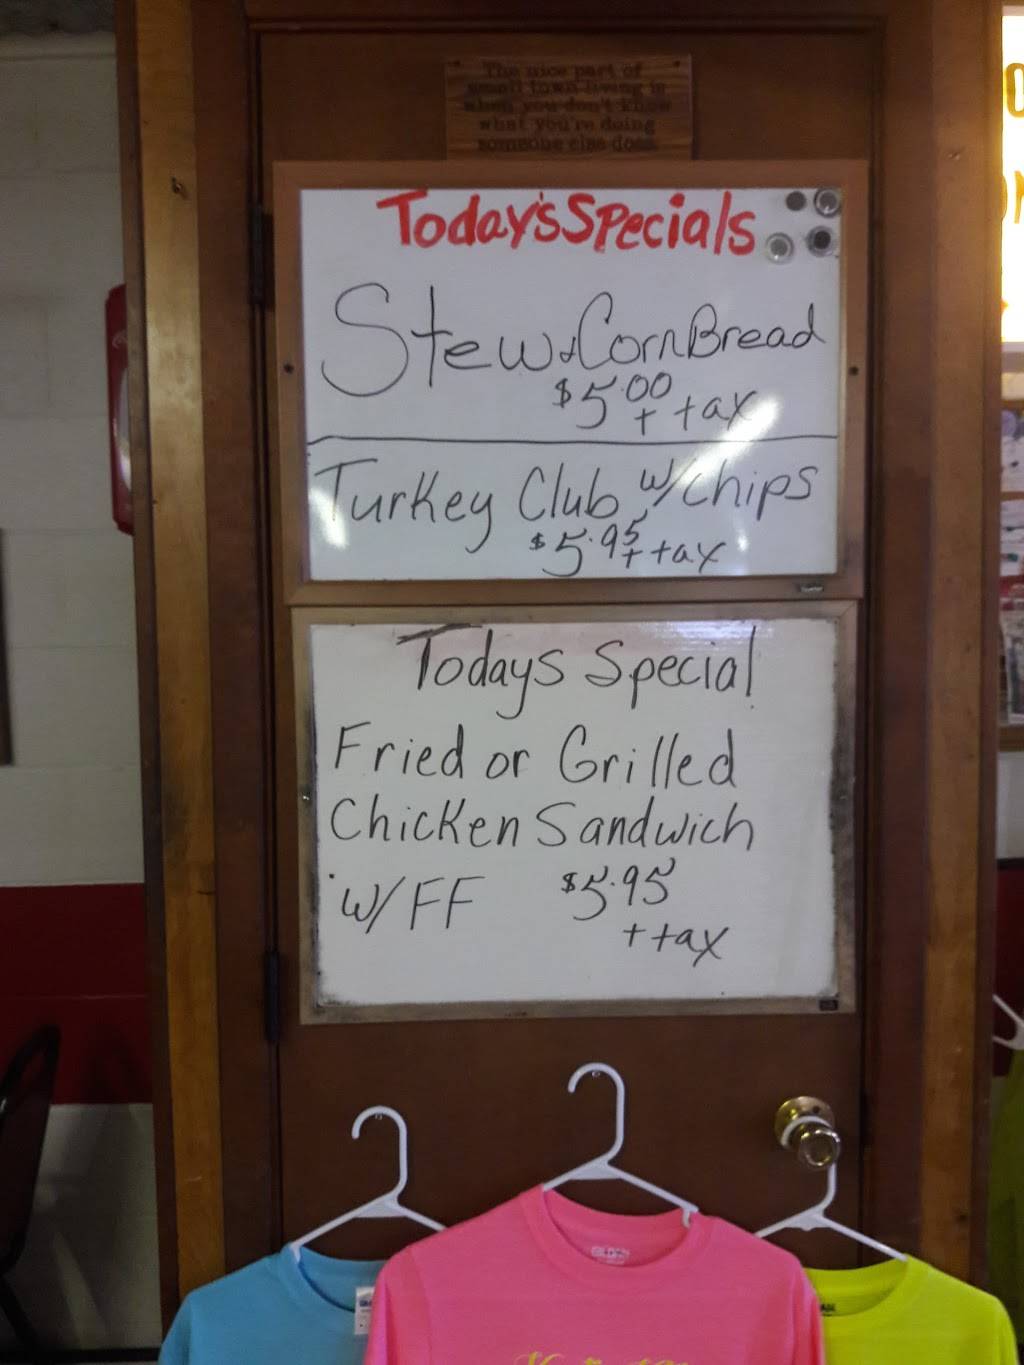 The nice part of
small town living is
when you don't know
what you're doing
someone else does.
Today's Specials
Stew & CornBread
$5.00 + tax
Turkey Club w/chips
$5.95 + tax
Todays Special
Fried or Grilled
Chicken Sandwich
w/ FF $5.95
+ tax
GILDAN